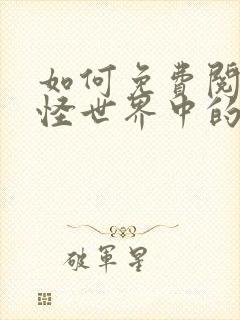 如何免費閱
怪世界中的
破軍星